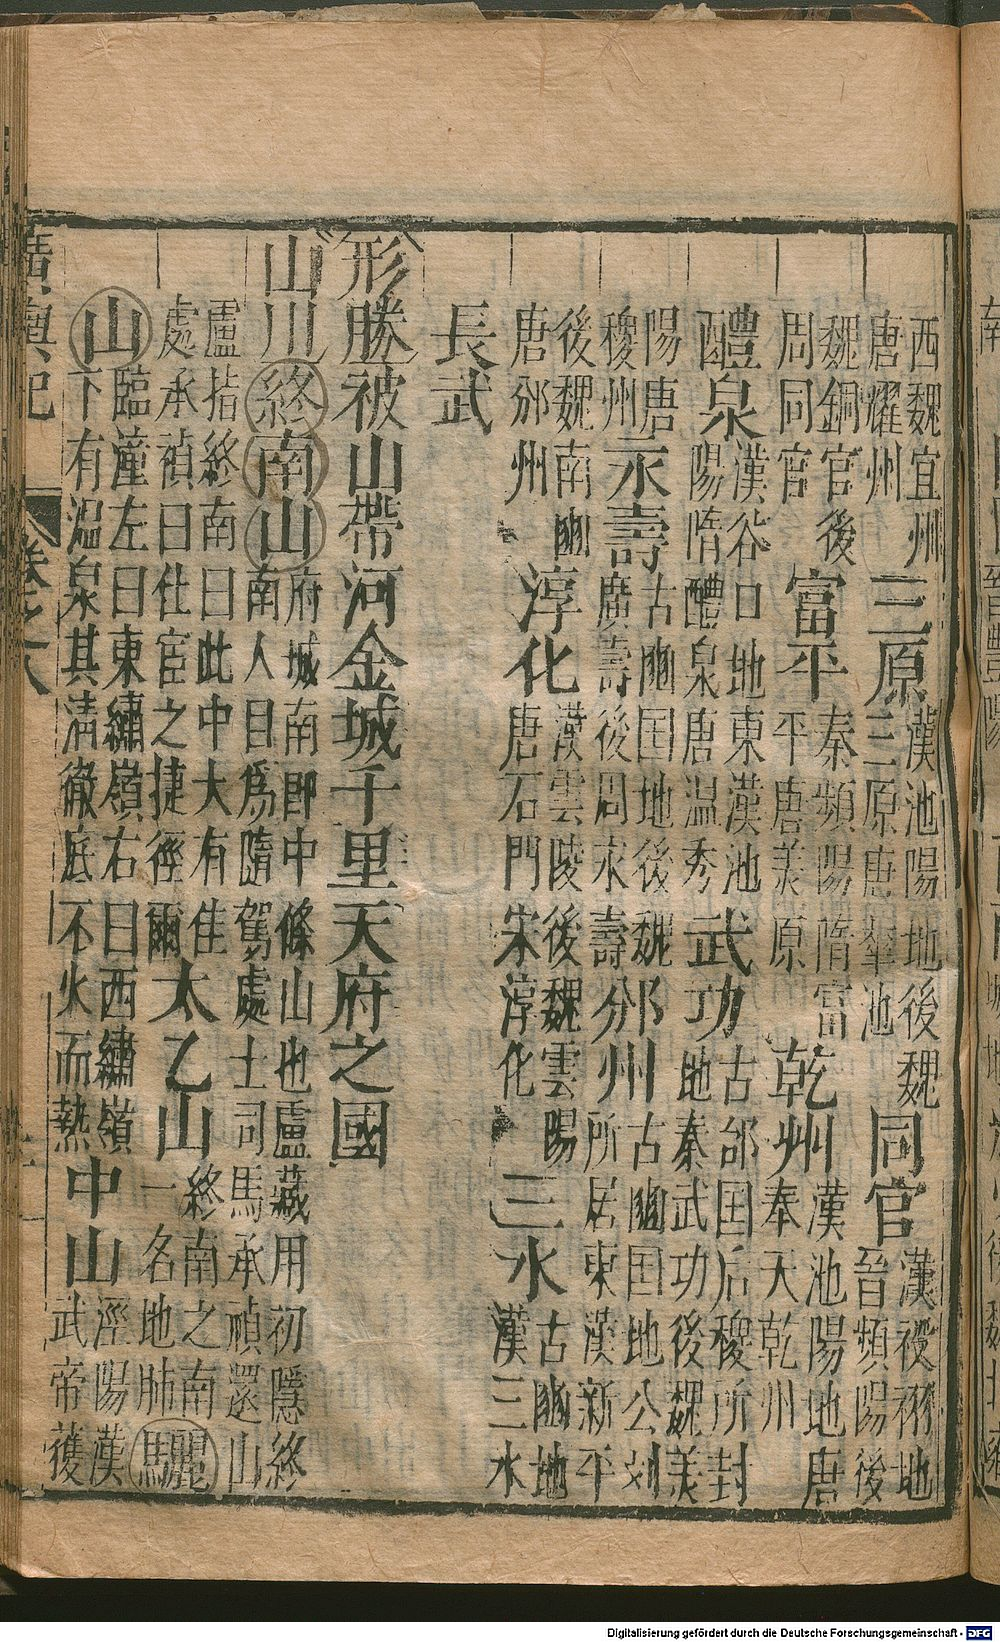 西魏宜州唐耀州三原漢池陽地後魏三原唐華池同官漢祋祤地晉頻陽後
魏銅官後周同官富平秦頻陽隋富平唐美原乾州漢池陽地唐奉天乾州
醴泉漢谷口地東漢池陽隋醴泉唐温秀武功古邰国后稷所封地秦武功後魏美
陽唐稷州永壽古豳国地後魏廣壽後周永壽邠州古豳国地公刘所居東漢新平
後魏南豳唐邠州淳化漢雲陵後魏雲陽唐石門宋淳化三水古豳地漢三水
長武
形勝被山帶河金城千里天府之國
山川終南山府城南即中條山也盧藏用初隱終南人目爲隨駕處士司馬承禎還山
盧指終南曰此中大有佳處承禎曰仕宦之捷徑爾太乙山終南之南一名地肺驪
山臨潼左曰東繡嶺右曰西繡嶺下有溫泉其清徹底不火而熱中山涇陽漢武帝獲
廣輿記 卷之八
Digitalisierung gefördert durch die Deutsche Forschungsgemeinschaft - DFG